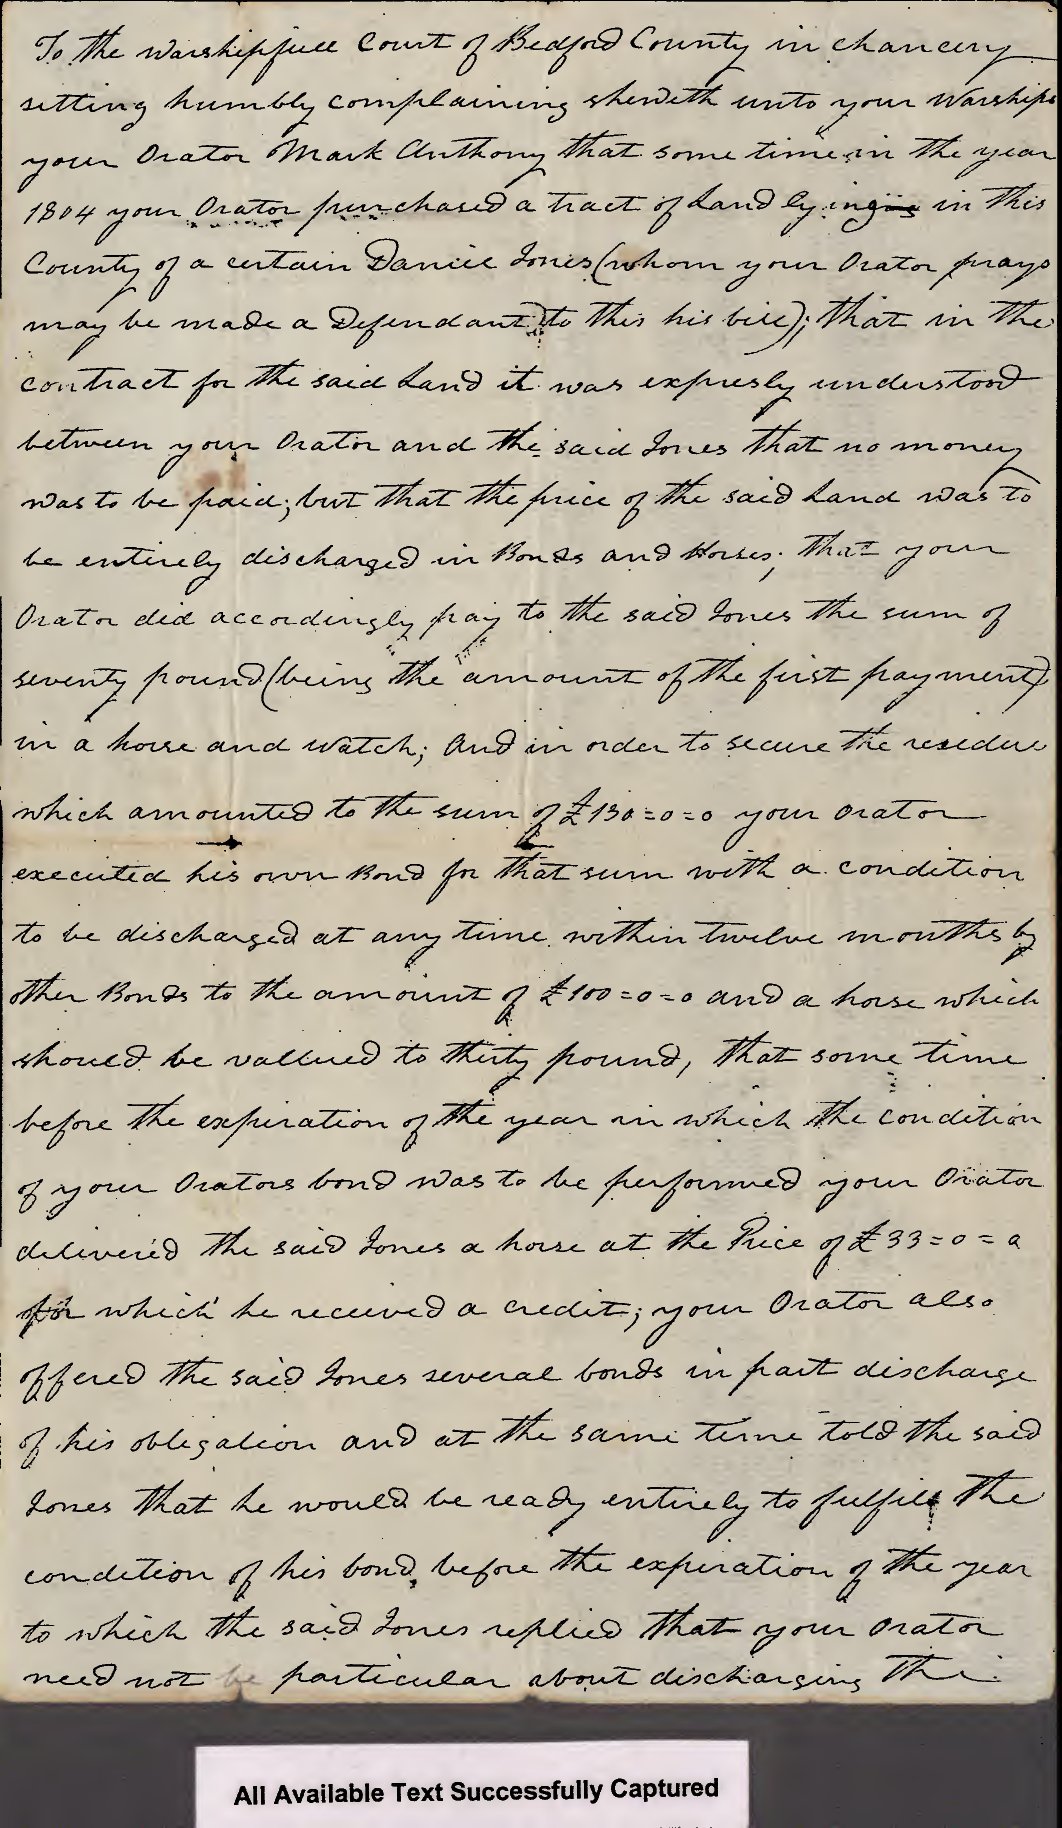 To the Warshipfull Court of Bedford County in chancery
setting humbly complaining sheweth unto your Warships
your Orator Mark Anthony that some time in the year
1804 your Orator purchased a tract of Land lying in this
County of a certain Daniel Jones (whom your Orator prays
may be made a Defendant) to this his bill); that in the
contract for the said Land it was expresly understood
between your Orator and the said Jones that no money
was to be paid; but that the price of the said Land was to
be entirely discharged in Bonds and Horses; that your
Orator did accordingly pay to the said Jones the sum of
seventy pound (being the amount of the first payment)
in a horse and watch; And in order to secure the residue
which amounted to the sum of £130=0=0 your Orator
executed his own Bond for that sum with a condition
to be discharged at any time within twelve months by
other Bonds to the amount of £100=0=0 and a horse which
should be vallued to thirty pound, that some time
before the expiration of the year in which the condition
of your Orators bond was to be performed your Orator
delivered the said Jones a horse at the Price of £33=0=0
for which he received a credit; your Orator also
offered the said Jones several bonds in part discharge
of his obligation and at the same time told the said
Jones that he would be ready entirely to fulfill the
condition of his bond, before the expiration of the year
to which the said Jones replied that your Orator
need not be particular about discharging the
All Available Text Successfully Captured